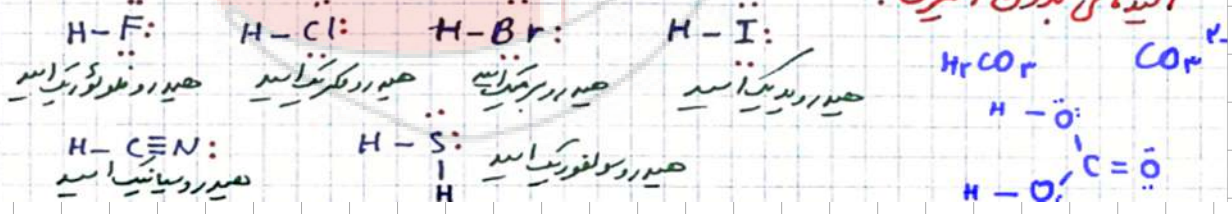 اسیدهای بدون اکسیژن:
H–F: H–Cl: H–Br: H–I:
هیدروفلوئوریک اسید هیدروکلریک اسید هیدروبرمیک اسید هیدرویدیک اسید
H–C≡N: H–S:
H
هیدروسیانیک اسید هیدروسولفوریک اسید
H۲CO۳ CO۳²⁻
H–O:
C=O
H–O: